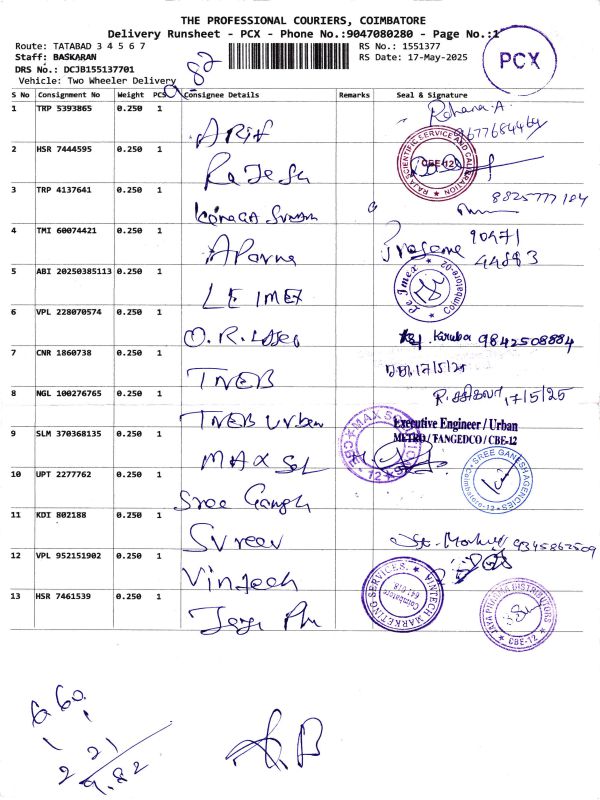 THE PROFESSIONAL COURIERS, COIMBATORE
Delivery Runsheet - PCX - Phone No.:9047080280 - Page No.:1
Route: TATABAD 3 4 5 6 7
RS No.: 1551377
Staff: BASKARAN
RS Date: 17-May-2025
DRS No.: DCJB155137701
Vehicle: Two Wheeler Delivery
82
PCX
S No Consignment No Weight PCS Consignee Details Remarks Seal & Signature
1 TRP 5393865 0.250 1
9677684464
2 HSR 7444595 0.250 1
RAJA SCIENTIFIC SERVICE AND CALIBRATION
CBE-12
3 TRP 4137641 0.250 1
8825777184
4 TMI 60074421 0.250 1
90471
44883
5 ABI 20250385113 0.250 1 LE IMEX
Le Imex Coimbatore-02
6 VPL 228070574 0.250 1
Kiruba 9842508884
7 CNR 1860738 0.250 1 TNEB
17/5/25
8 NGL 100276765 0.250 1 TNEB Urban
17/5/25
Executive Engineer / Urban
METRO / TANGEDCO / CBE-12
9 SLM 370368135 0.250 1 MAX Sol
10 UPT 2277762 0.250 1 Sree Gangh
SREE GANESH AGENCIES
Coimbatore-12
11 KDI 802188 0.250 1
9345862509
12 VPL 952151902 0.250 1 Vintech
VINTECH MARKETING SERVICES.
Coimbatore
641 018
13 HSR 7461539 0.250 1
JAYA PHARMA DISTRIBUTORS
CBE-12
660
2 21
9.82